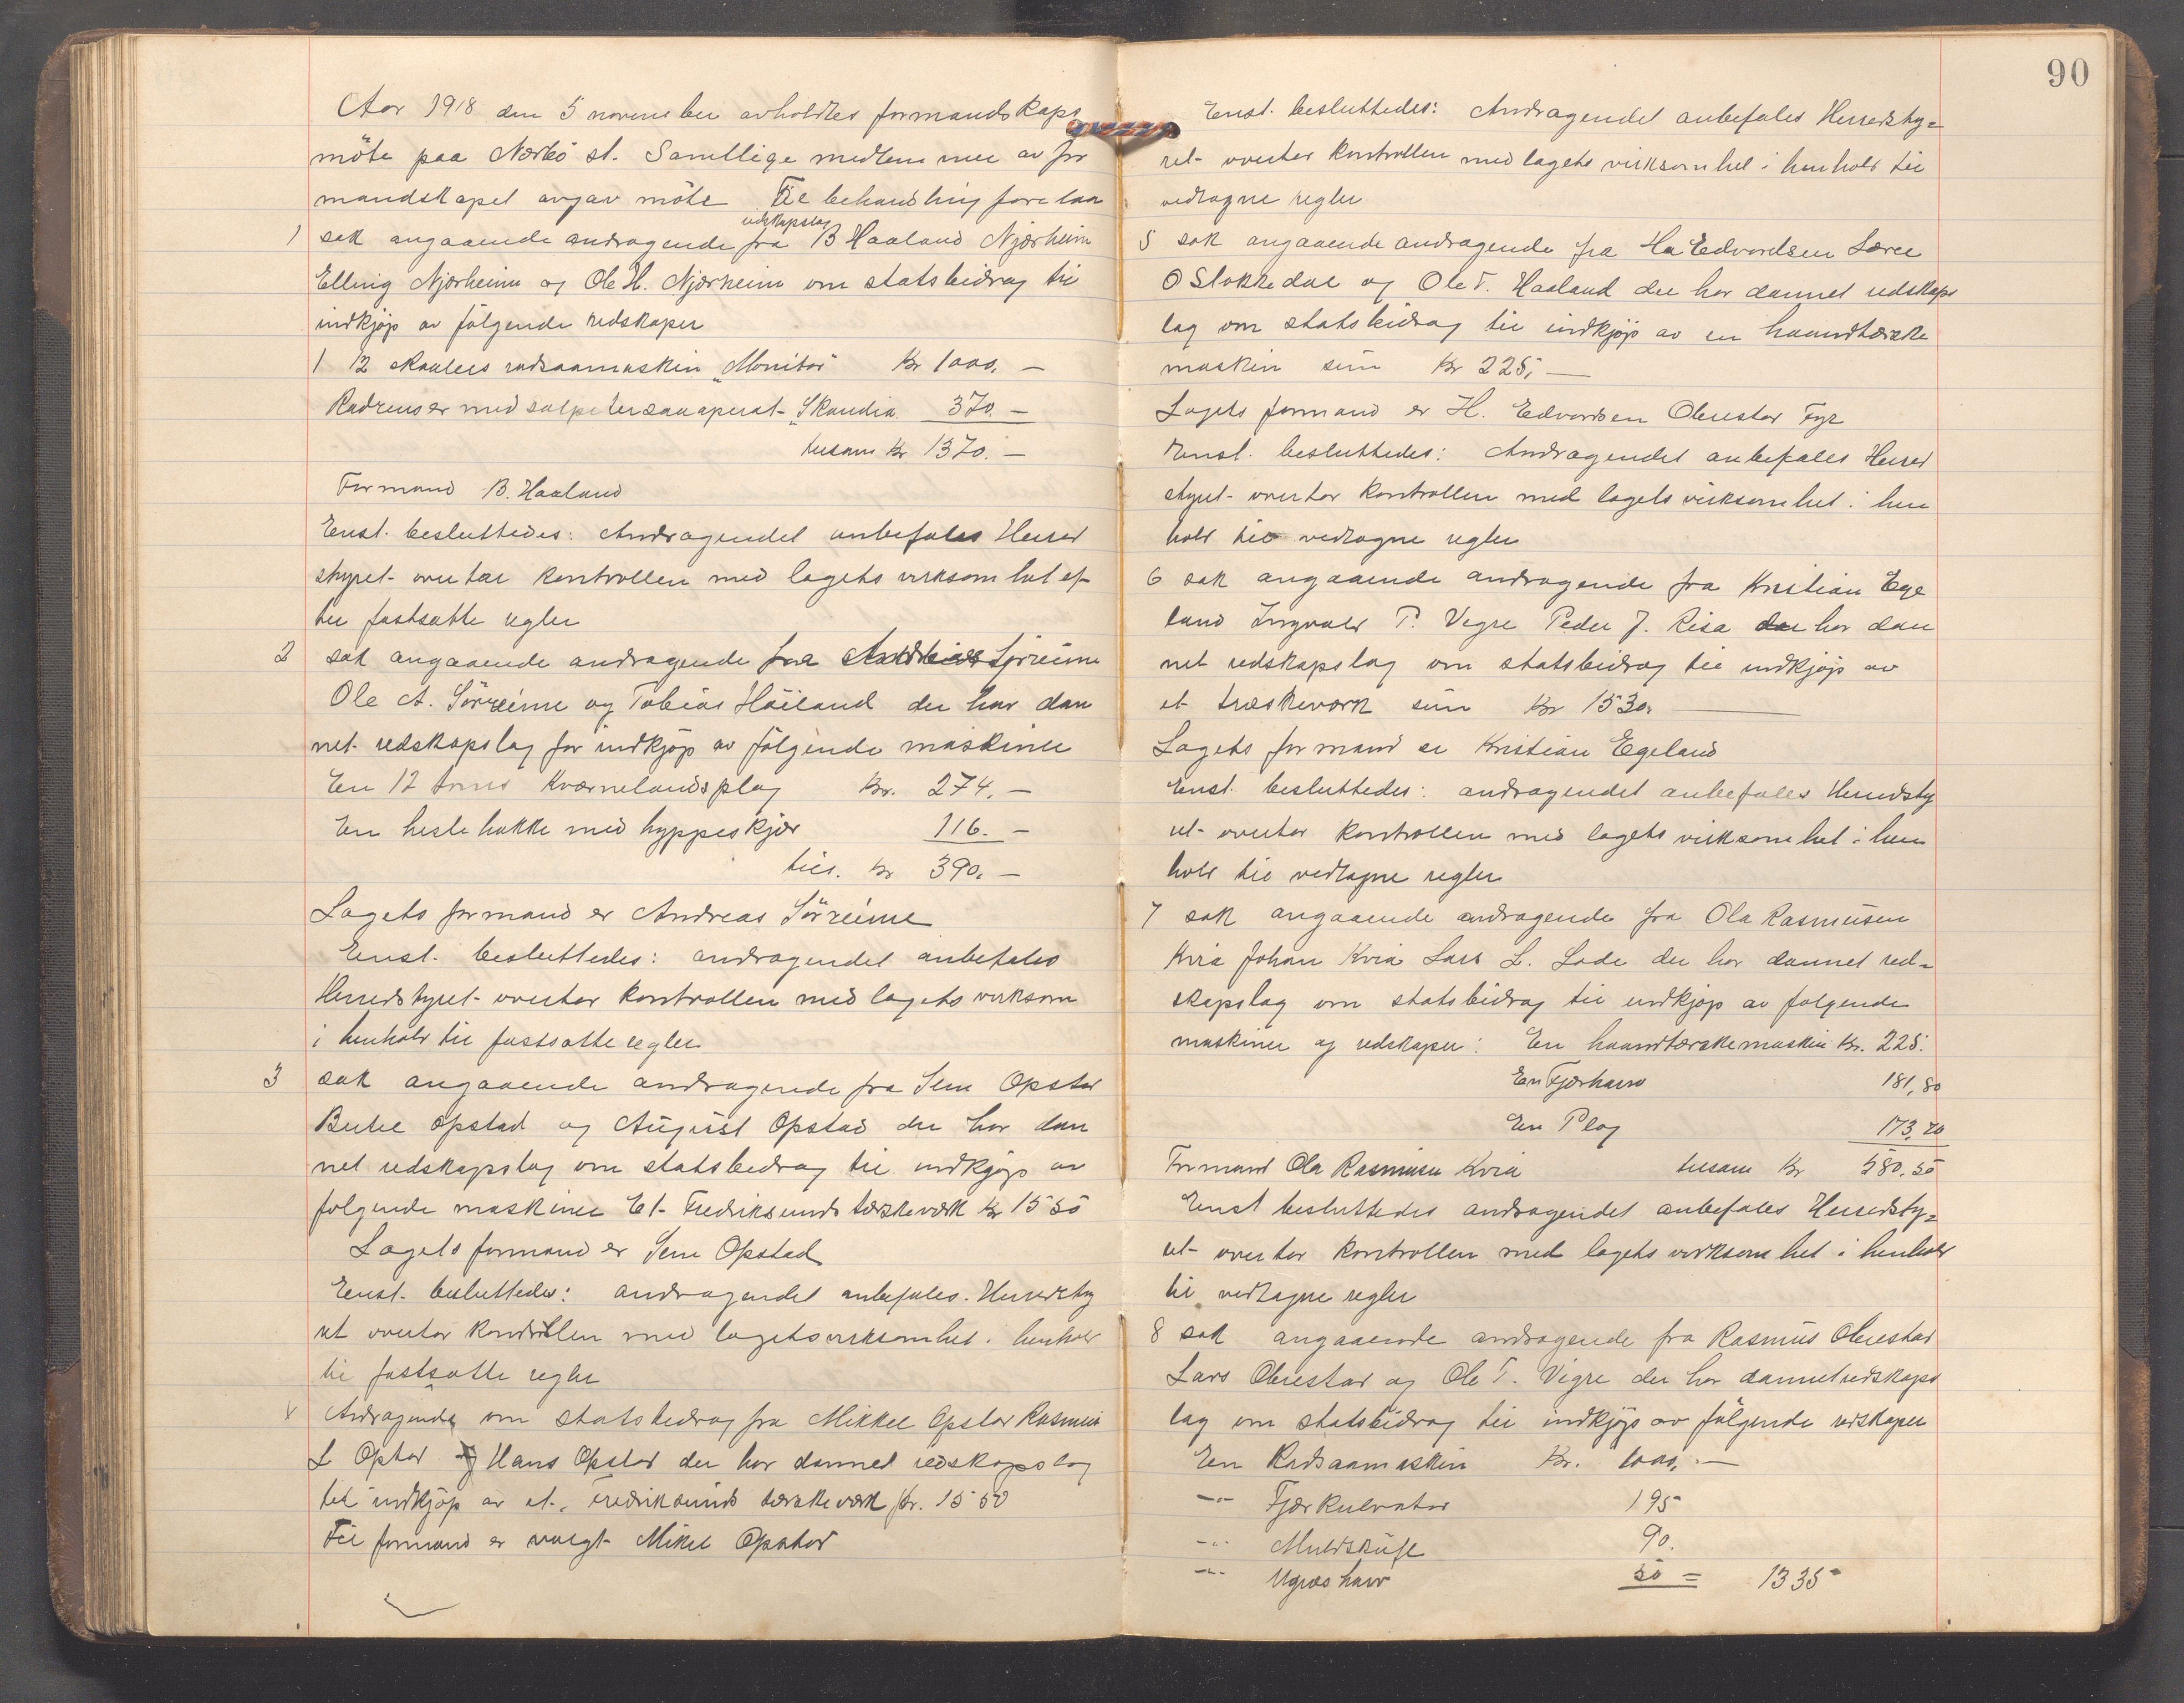 Aar 1918 den 5 november avholdtes formandskaps
möte paa Nærbö st. Samtlige medlemmer av for
mandskapet avgav möte Til behandling forelaa
redskapslag
1 sak angaaende andragende fra B Haaland Njærheim
Elling Njærheim og Ole H. Njærheim om statsbidrag til
indkjøp av følgende redskaper
1 12 skaalers radsaamaskin "Monitor" Kr 1000. —
Radrenser med salpetersaaaperat "Skandia 370. —
tilsam Kr 1370. —
Formand B. Haaland
Enst. besluttedes: Andragendet anbefales Herred
styret overtar kontrollen med lagets virksomhet ef-
ter fastsatte regler
2 sak angaaende andragende fra Andreas Sörreime
Ole A. Sörreime og Tobias Höiland der har dan
net redskapslag for indkjøp av følgende maskiner
En 12 toms Kværnelandsplog Kr. 274. —
En hestehakke med hyppeskjær 116. —
tils. Kr 390. —
Lagets formand er Andreas Sörreime
Enst. besluttedes: andragendet anbefales
Herredstyret overtar kontrollen med lagets virksom
i henhold til fastsatte regler
3 sak angaaende andragende fra Sem Opstad
Bertel Opstad og August Opstad der har dan
net redskapslag om statsbidrag til indkjøp av
følgende maskiner Et Fredriksunds tærskeværk Kr 1550
Lagets formand er Sem Opstad
Enst. besluttedes: andragendet anbefales. Herredsty
ret overtar kontrollen med lagets virksomhet i henhold
til fastsatte regler
4 Andragende om statsbidrag fra Mikkel Opstad Rasmus
L Opstad og Hans Opstad der har dannet redskapslag
til indkjøp av et Fredriksunds tærskeværk Kr. 1550
Til formand er valgt Mikel Opstad
90
Enst. besluttedes: Andragendet anbefales Herredsty=
ret overtar kontrollen med lagets virksomhet i henhold til
vedtagne regler
5 sak angaaende andragende fra H Edvardsen Lærer
O Stokkedal og Ole T. Haaland der har dannet redskaps
lag om statsbidrag til indkjøp av en haandtærske
maskin sum Kr 225, —
Lagets formand er H. Edvardsen Obrestad Fyr
Enst. besluttedes: Andragendet anbefales Herred
styret overtar kontrollen med lagets virksomhet i hen
hold til vedtagne regler
6 sak angaaende andragende fra Kristian Ege
land Ingvald P. Vigre Peder J. Risa der har dan
net redskapslag om statsbidrag til indkjøp av
et træskeværk sum Kr 1530. —
Lagets formand er Kristian Egeland
Enst. besluttedes: andragendet anbefales Herredsty
ret overtar kontrollen med lagets virksomhet i hen
hold til vedtagne regler
7 sak angaaende andragende fra Ola Rasmusen
Kvia Johan Kvia Lars L. Lode der har dannet red=
skapslag om statsbidrag til indkjøp av følgende
maskiner og redskaper: En haandtærskemaskin Kr. 225.
En Fjærharv 181,80
En Plog 173,70
Formand Ola Rasmusen Kvia tilsam Kr 580.50
Enst besluttedes andragendet anbefales Herredsty=
ret overtar kontrollen med lagets virksomhet i henhold
til vedtagne regler
8 sak angaaende andragende fra Rasmus Obrestad
Lars Obrestad og Ole T. Vigre der har dannet redskaps
lag om statsbidrag til indkjøp av følgende redskaper
En Radsaamaskin Kr. 1000. —
-"- Fjærkulvator 195
-"- Muldskufl 90.
-"- Ugræsharv 50 = 1335